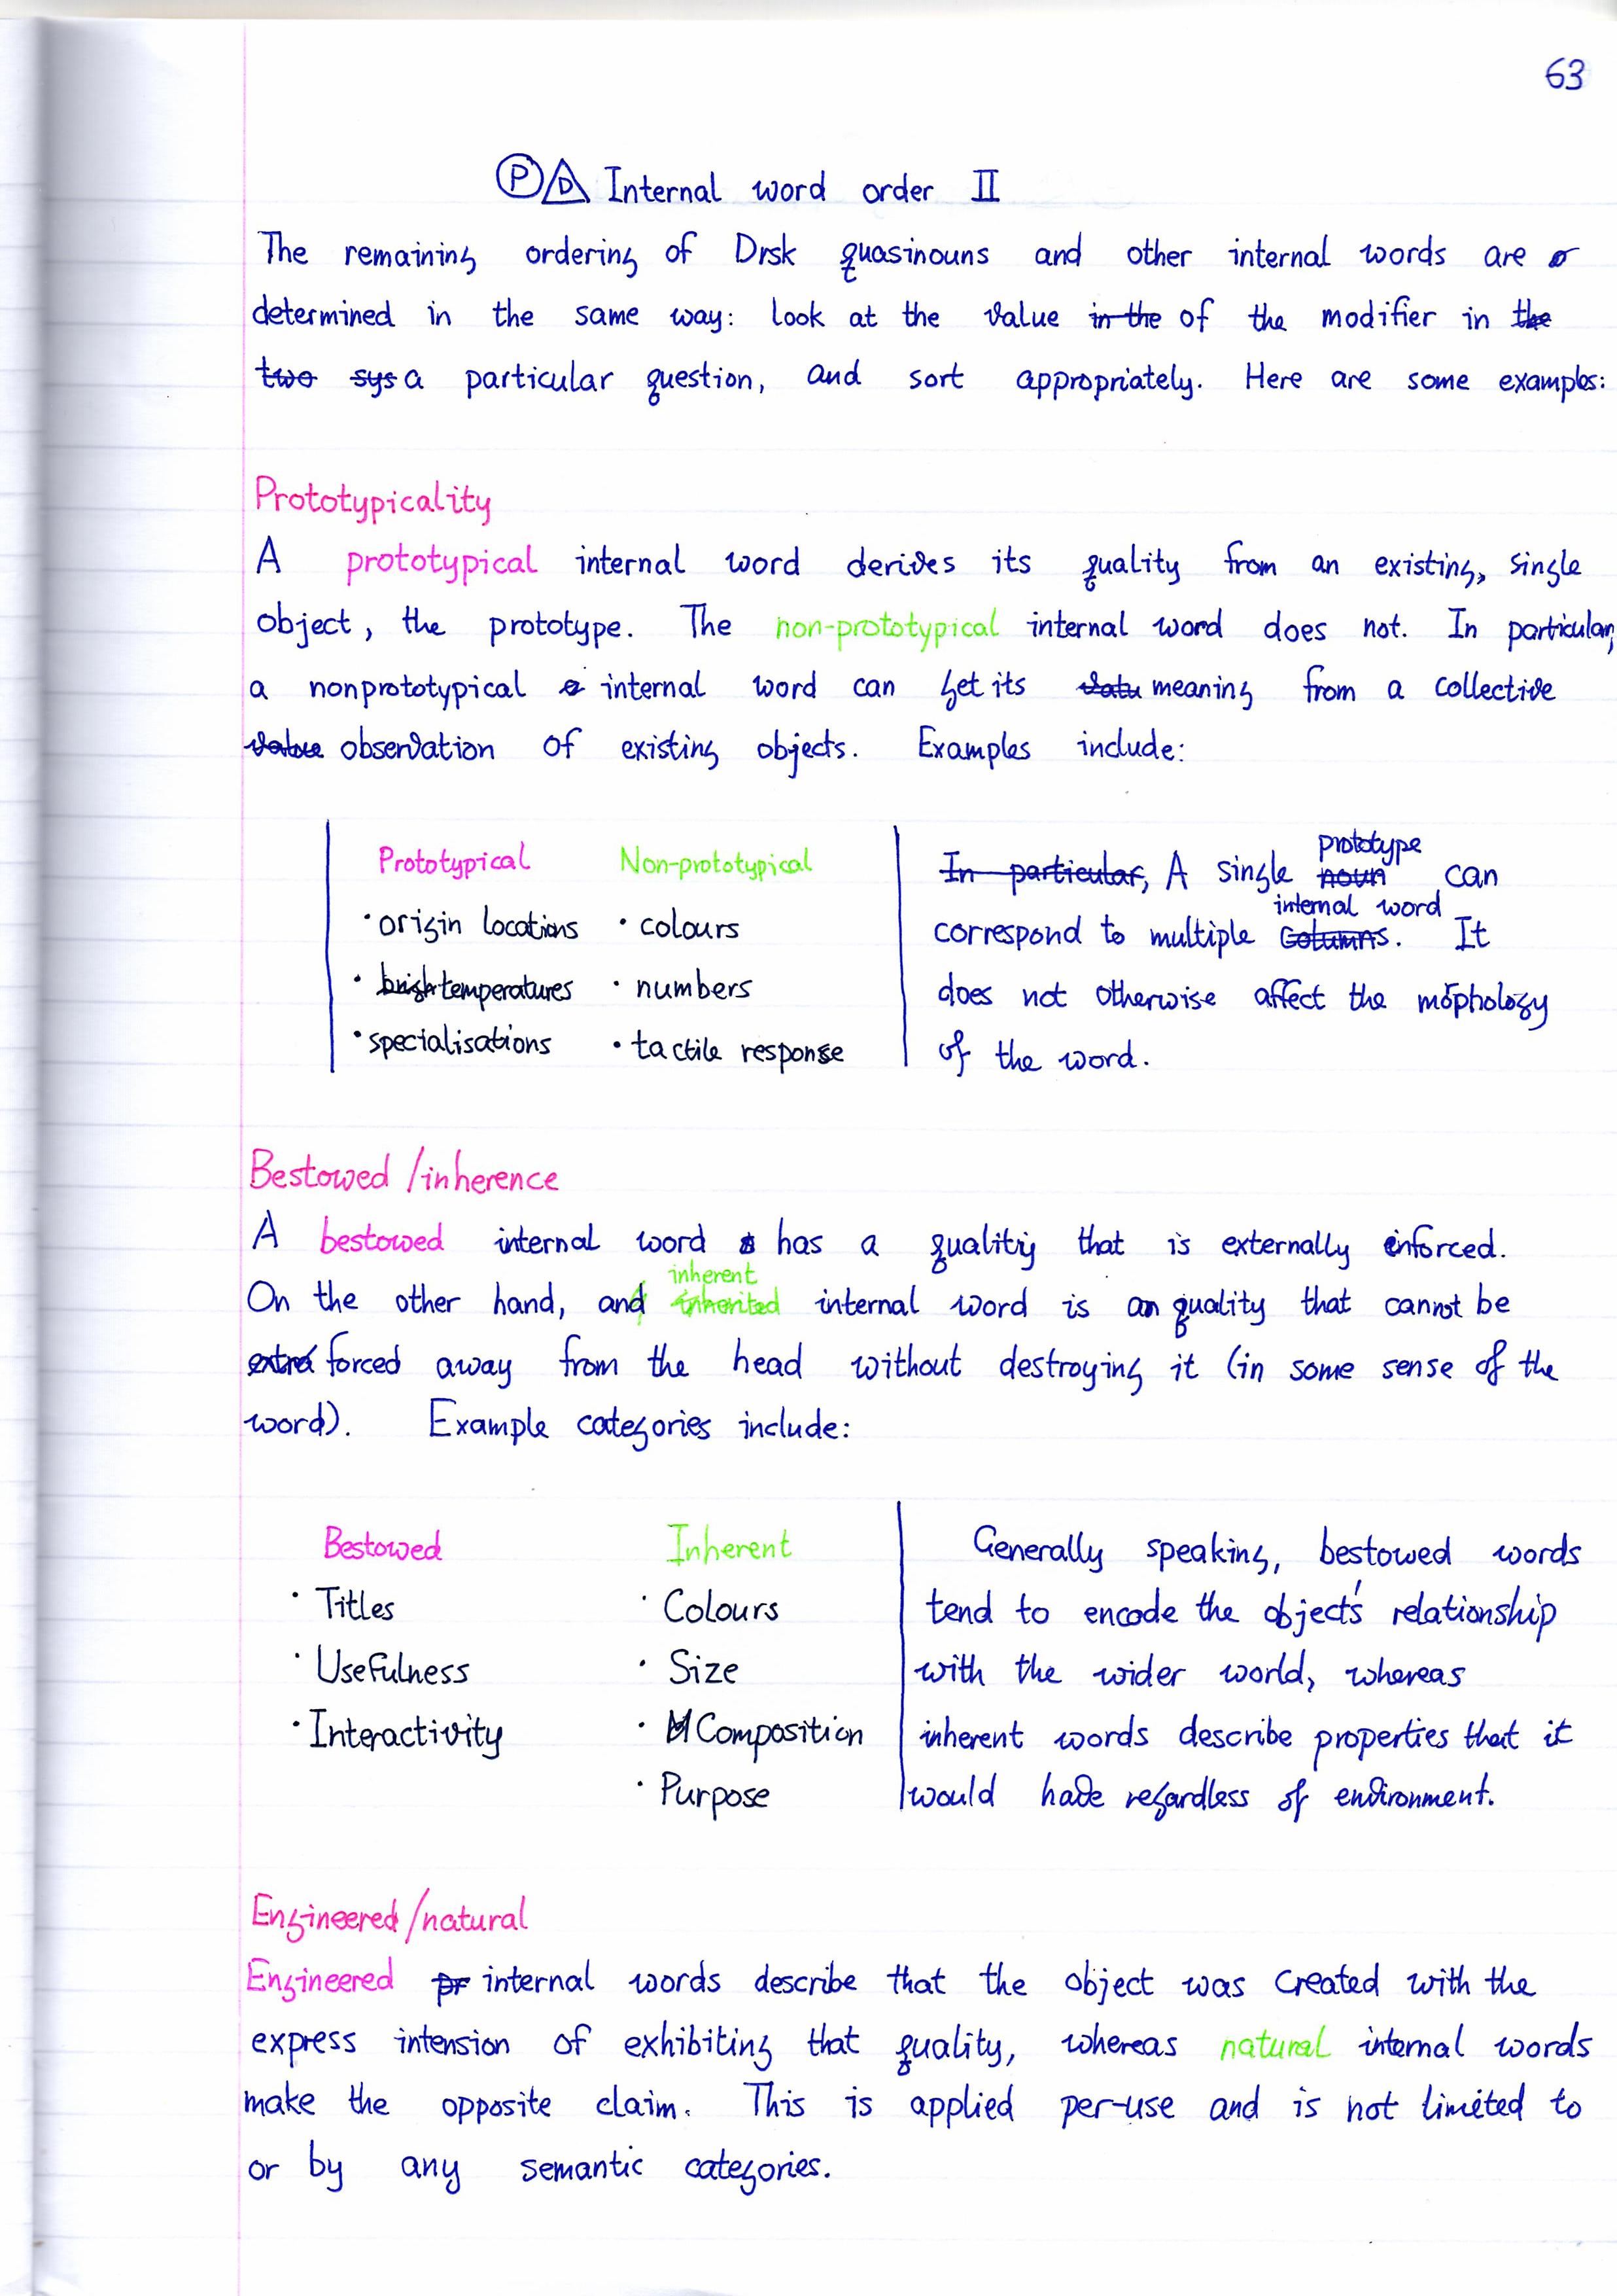 63
Ⓟ D Internal word order II
The remaining ordering of Drsk quasinouns and other internal words are
determined in the same way: look at the value in the of the modifier in the
two sys a particular question, and sort appropriately. Here are some examples:
Prototypicality
A prototypical internal word derives its quality from an existing, single
object, the prototype. The non-prototypical internal word does not. In particular,
a nonprototypical internal word can get its valu meaning from a collective
value observation of existing objects. Examples include:
Prototypical Non-prototypical
· origin locations · colours
· brigh temperatures · numbers
· specialisations · tactile response
prototype
In particular, A single noun can
internal word
correspond to multiple columns. It
does not otherwise affect the morphology
of the word.
Bestowed/inherence
A bestowed internal word has a quality that is externally enforced.
inherent
On the other hand, and inherited internal word is an quality that cannot be
extra forced away from the head without destroying it (in some sense of the
word). Example categories include:
Bestowed Inherent
· Titles · Colours
· Usefulness · Size
· Interactivity · M Composition
· Purpose
Generally speaking, bestowed words
tend to encode the object's relationship
with the wider world, whereas
inherent words describe properties that it
would have regardless of environment.
Engineered/natural
Engineered pr internal words describe that the object was created with the
express intension of exhibiting that quality, whereas natural internal words
make the opposite claim. This is applied per-use and is not limited to
or by any semantic categories.